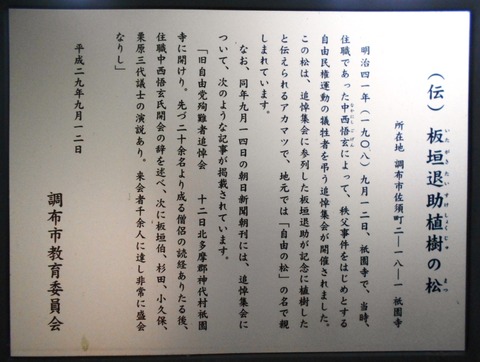 （伝）板垣退助植樹の松
いたがきたいすけしょくじゅ まつ
所在地 調布市佐須町二―一八―一 祇園寺
明治四一年（一九〇八）九月一二日、祇園寺で、当時、
住職であった中西悟玄によって、秩父事件をはじめとする
なかにしごげん
自由民権運動の犠牲者を弔う追悼集会が開催されました。
この松は、追悼集会に参列した板垣退助が記念に植樹した
と伝えられるアカマツで、地元では「自由の松」の名で親
しまれています。
なお、同年九月一四日の朝日新聞朝刊には、追悼集会に
ついて、次のような記事が掲載されています。
「旧自由党殉難者追悼会 十二日北多摩郡神代村祇園
寺に開けり。先づ二十余名より成る僧侶の読経ありたる後、
住職中西悟玄氏開会の辞を述べ、次に板垣伯、杉田、小久保、
栗原三代議士の演説あり。来会者千余人に達し非常に盛会
なりし」
平成二九年九月一二日
調布市教育委員会